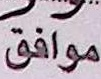 موافق